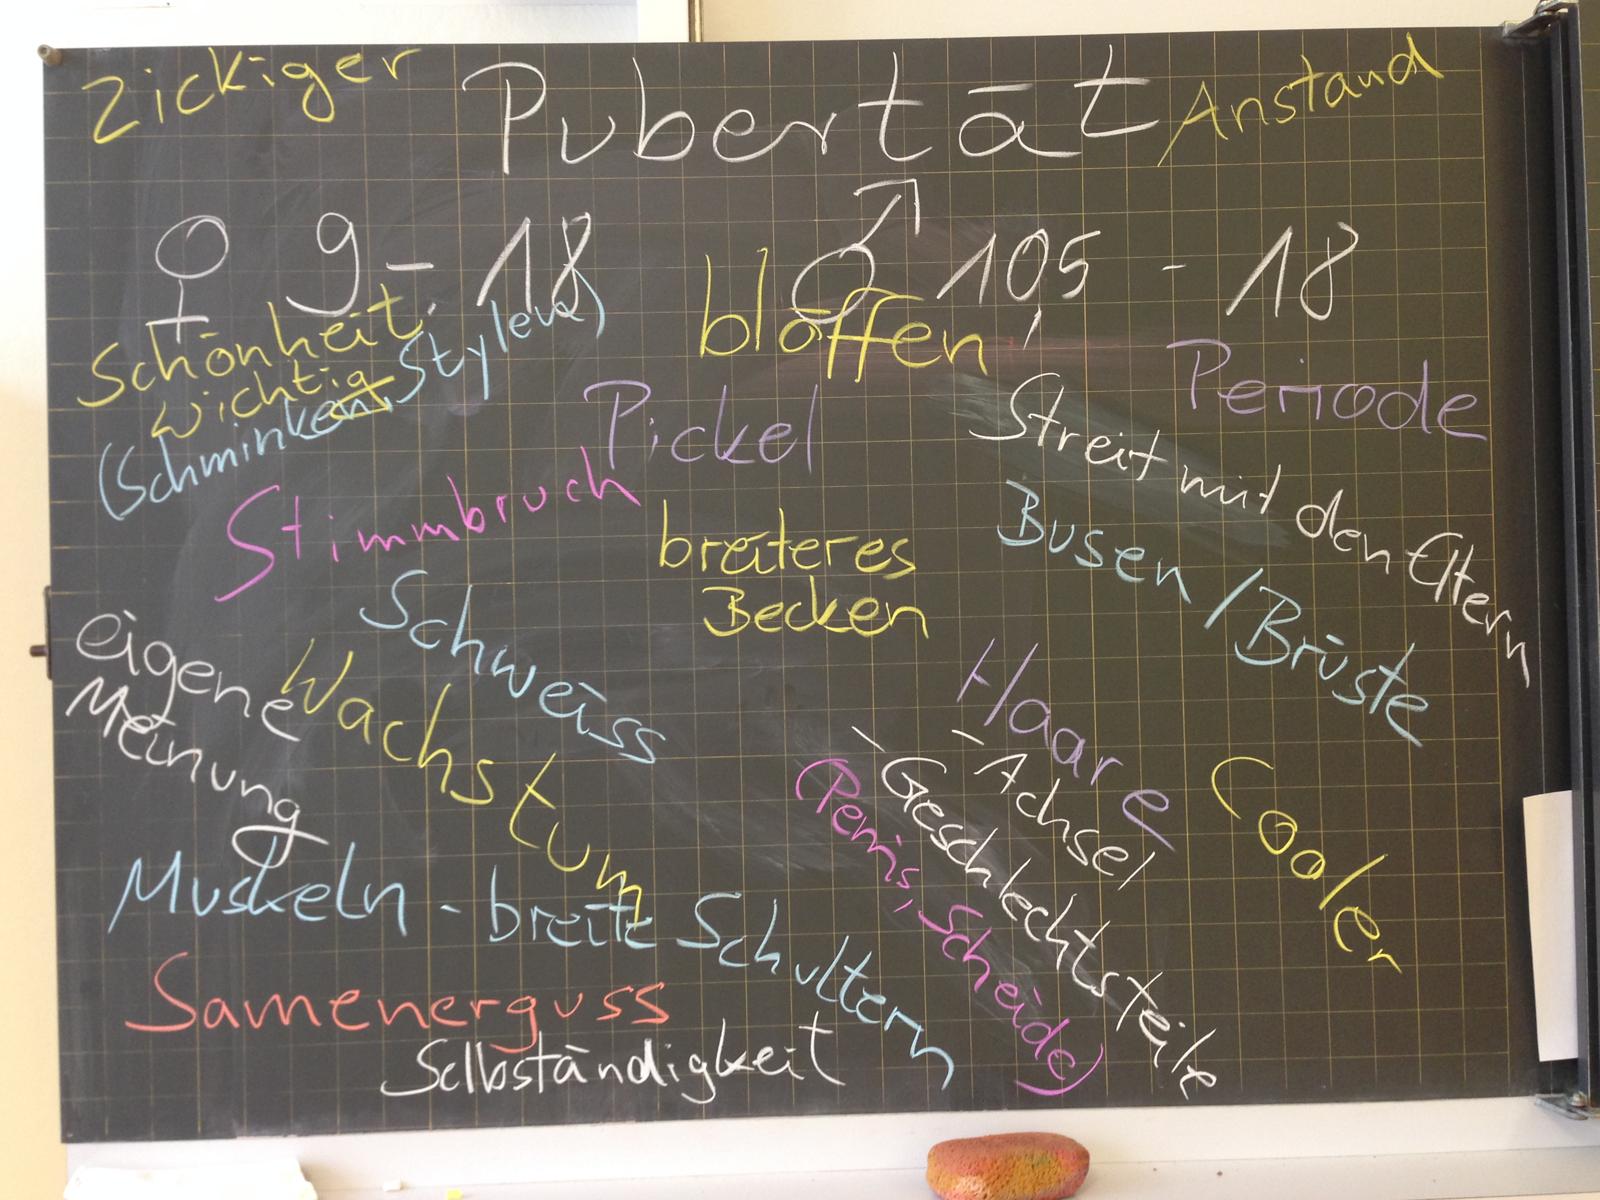 Zickiger
Pubertät
Anstand
♀ 9 - 18
♂ 10,5 - 18
Schönheit
wichtig
(Schminken, Stylen)
blöffen
Periode
Pickel
Streit mit den Eltern
Stimmbruch
breiteres
Becken
Busen / Brüste
Schweiss
eigene
Meinung
Wachstum
Haare
- Achsel
- Geschlechtsteile
(Penis, Scheide)
Cooler
Muskeln - breite Schultern
Samenerguss
Selbständigkeit